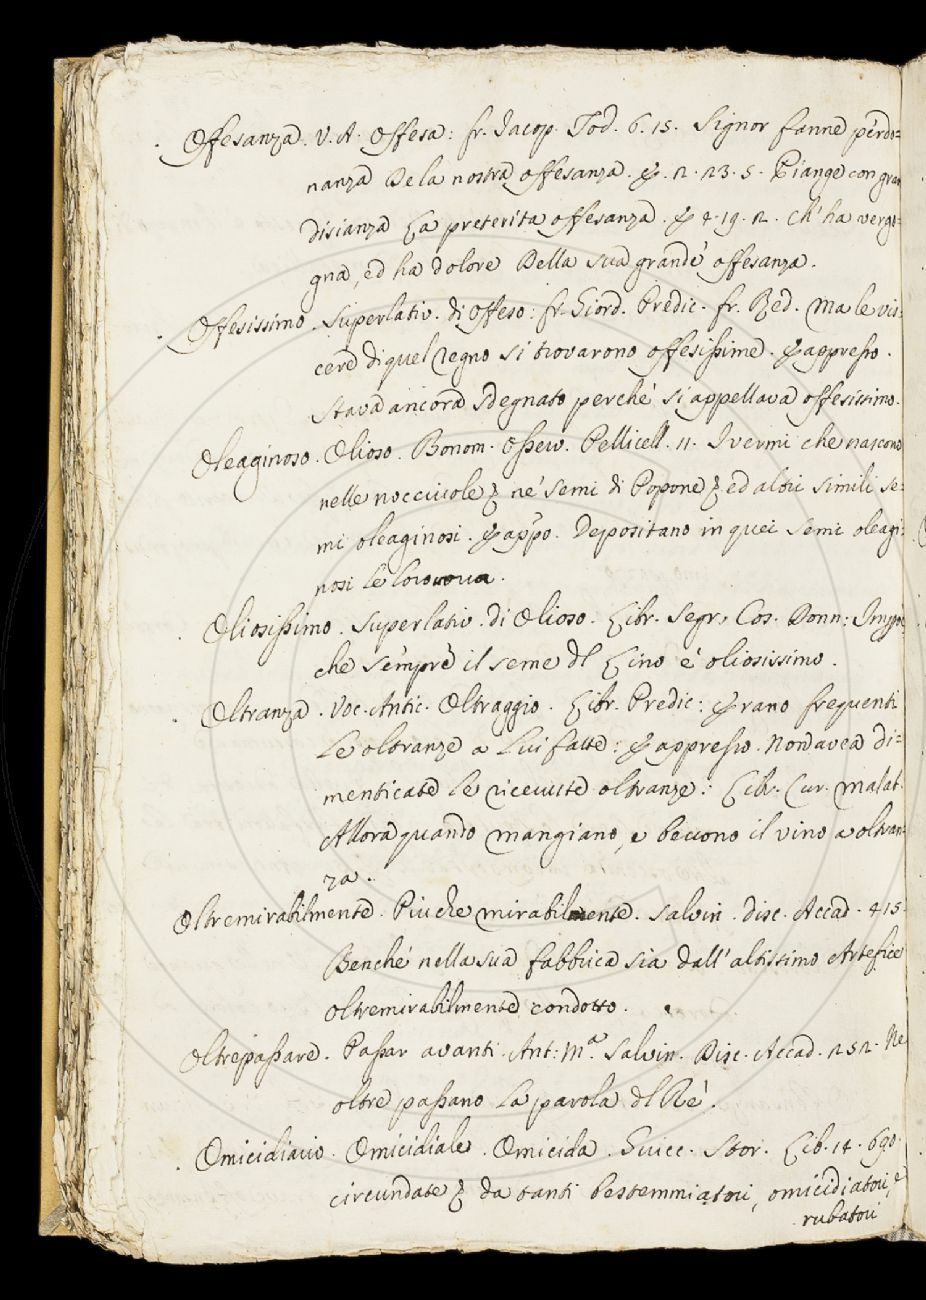 Offesanza. V. A. Offesa: fr. Iacop. Tod. 6. 15. Signor fanne perdo=
nanza De la nostra offesanza. E 2. 23. 5. Piange con gran
disianza La preterita offesanza. E 4. 19. 2. Ch' ha vergo=
gna, ed ha dolore Della sua grande offesanza.
Offesissimo. Superlativ. di Offeso: fr. Giord. Predic. fr. Red. Ma le vis=
cere di quel regno si trovarono offesissime. E appresso.
Stava ancora sdegnato perché si appellava offesissimo.
Oleaginoso. Olioso. Bonom. Osserv. Pellicell. 11. I vermi che nascono
nelle nocciuole & ne' semi di Popone & ed altri simili se=
mi oleaginosi. E appo. Depositano in quei semi oleagi=
nosi le loro uova.
Oliosissimo. Superlativ. di Olioso. Libr. Segr. Cos. Donn: Impo.
che sempre il seme dl Lino é oliosissimo.
Oltranza. Voc. Antic. Oltraggio. Libr. Predic: Erano frequenti
Le oltranze a Lui fatte: E appresso. Non avea di=
menticate le ricevute oltranze: Libr. Cur. malat.
Allora quando mangiano, e bevono il vino a oltran=
za.
Oltremirabilmente. Piuche mirabilmente. Salvin. disc. Accad. 415.
Benché nella sua fabbrica sia dall' altissimo Artefice
oltremirabilmente condotto.
Oltrepassare. Passar avanti. Ant: M.ª Salvin. Disc. Accad. 252. Ne
oltre passano la parola dl Ré.
Omicidiario. Omicidiale. Omicida. Guicc. Stor. Lib. 14. 690.
circundate & da tanti bestemmiatori, omicidiatori, e
rubatori